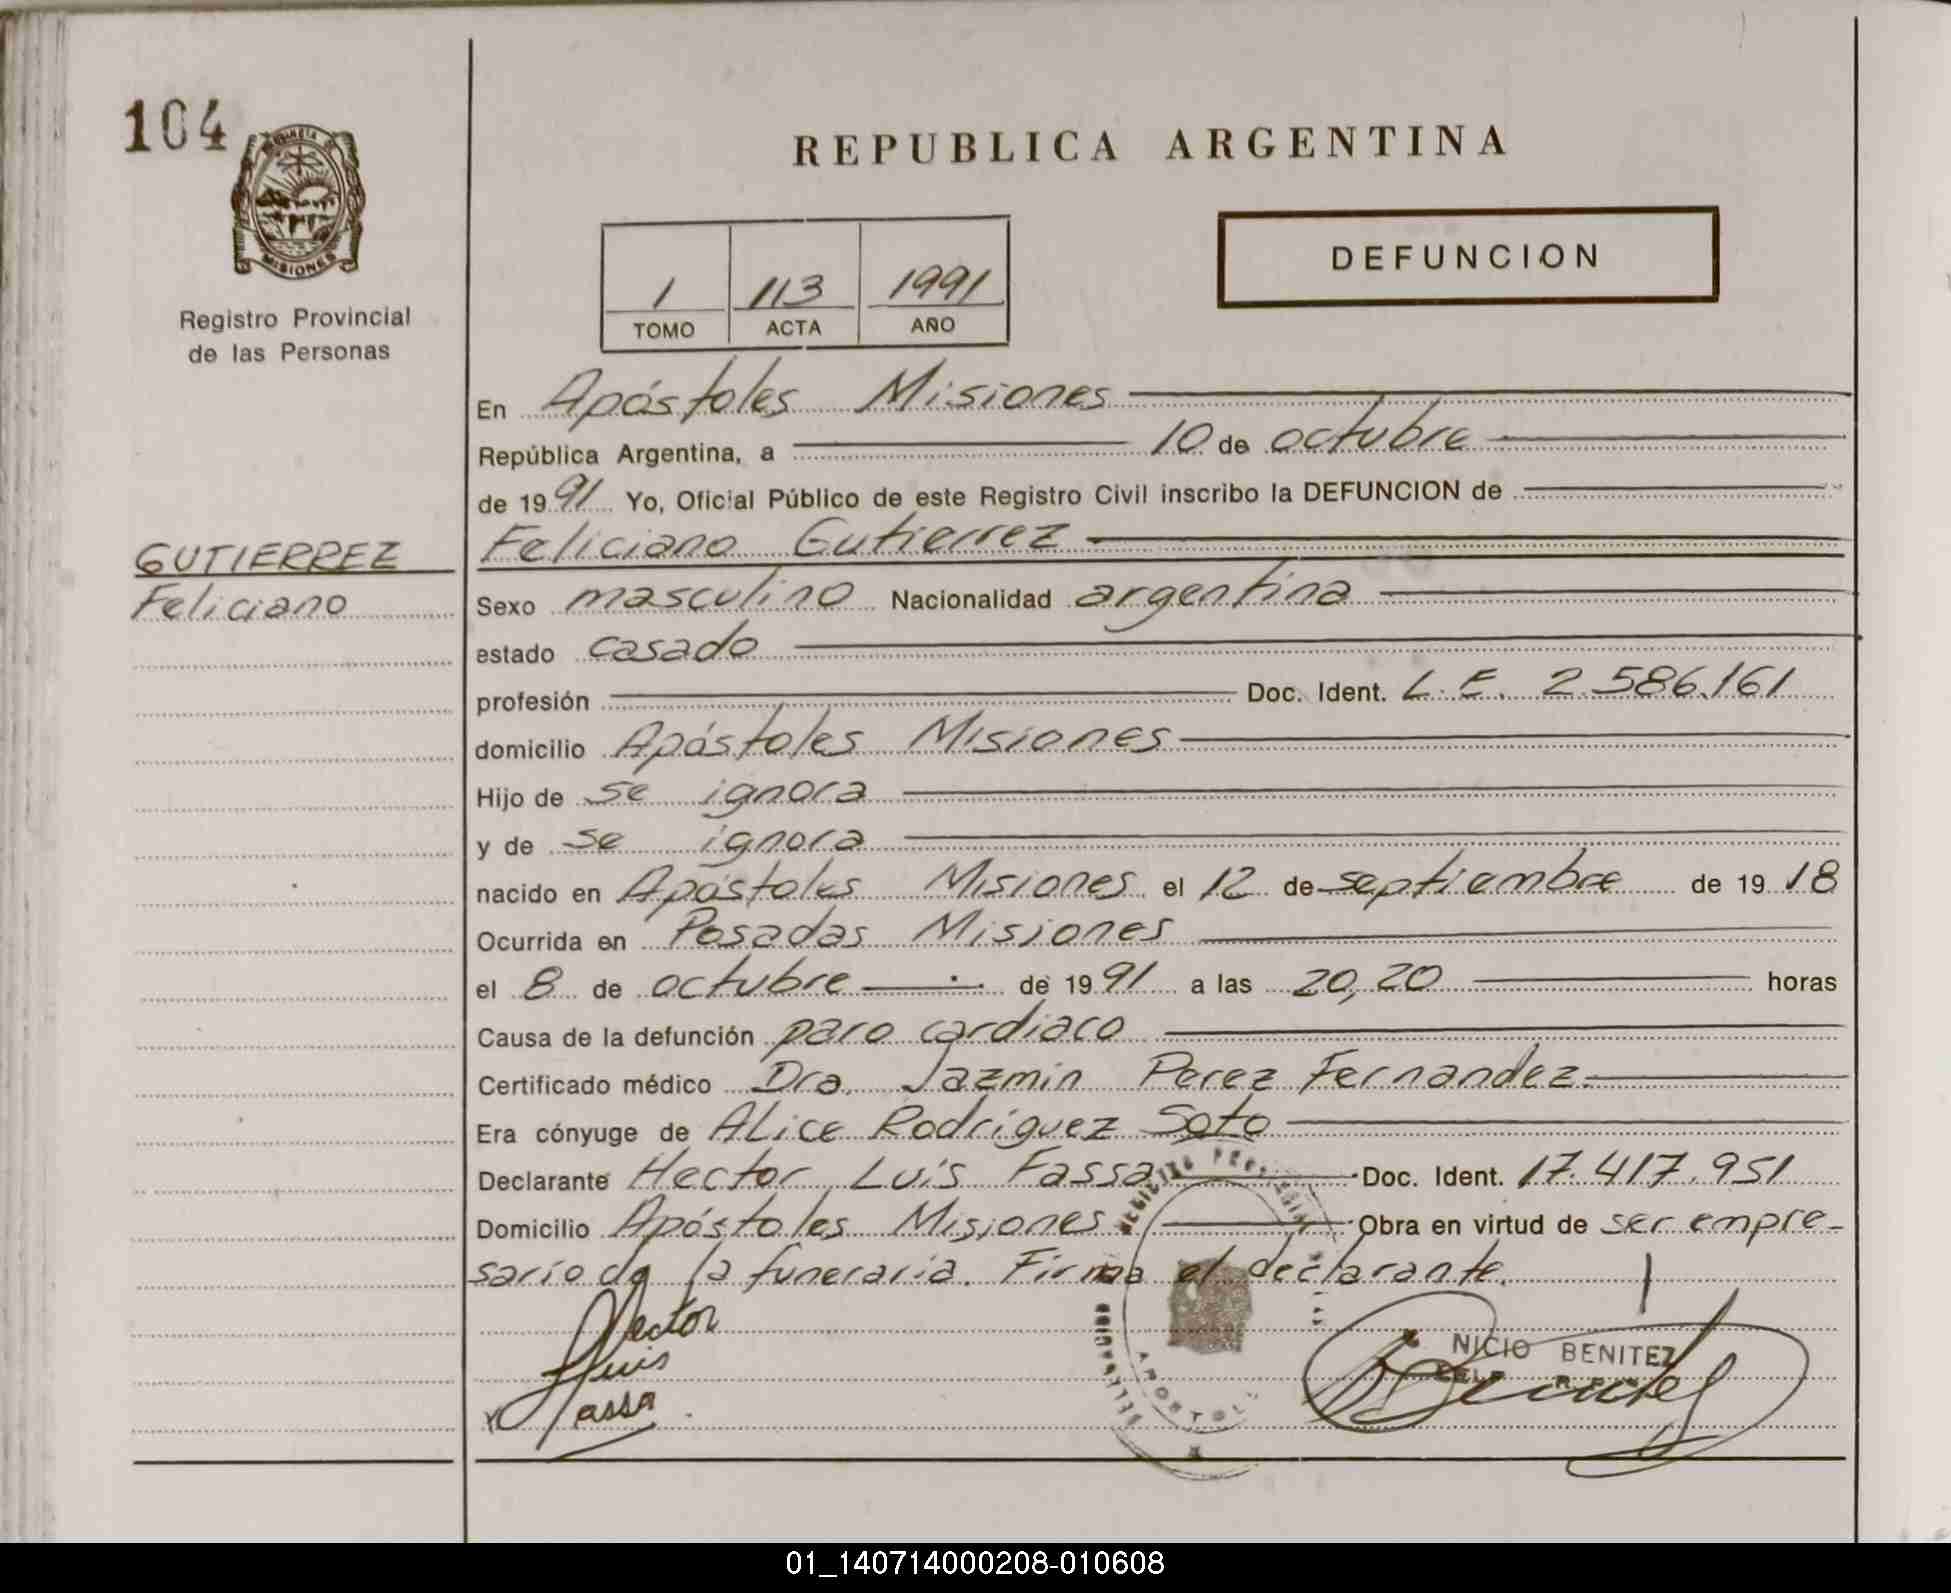 104
REPUBLICA ARGENTINA
PROVINCIA DE
MISIONES
Registro Provincial
de las Personas
DEFUNCION
1 113 1991
TOMO ACTA AÑO
En Apóstoles Misiones
República Argentina, a 10 de octubre
de 1991 Yo, Oficial Público de este Registro Civil inscribo la DEFUNCION de
GUTIERREZ
Feliciano
Feliciano Gutierrez
Sexo masculino Nacionalidad argentina
estado casado
profesión Doc. Ident. L.E. 2.586.161
domicilio Apóstoles Misiones
Hijo de se ignora
y de se ignora
nacido en Apóstoles Misiones el 12 de septiembre de 1918
Ocurrida en Posadas Misiones
el 8 de octubre de 1991 a las 20,20 horas
Causa de la defunción paro cardiaco
Certificado médico Dra. Jazmin Perez Fernandez.
Era cónyuge de ALice Rodriguez Soto
Declarante Hector Luis Fassa Doc. Ident. 17.417.951
Domicilio Apóstoles Misiones Obra en virtud de ser empre-
sario de la funeraria. Firma el declarante.
Hector
Luis
Fassa
NICIO BENITEZ
APOSTOL
01_140714000208-010608